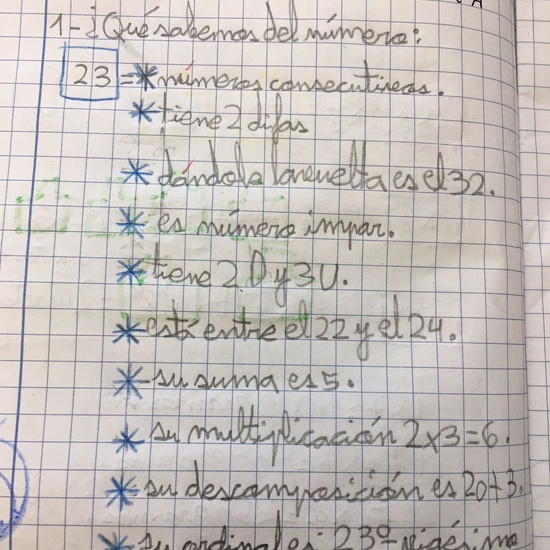 1-¿Qué sabemos del número:
23 = * números consecutivos.
* tiene 2 difas
* dándole la vuelta es el 32.
* es número impar.
* tiene 2 D y 3 U.
* está entre el 22 y el 24.
* su suma es 5.
* su multiplicación 2x3=6.
* su descomposición es 20+3.
* su ordinal es: 23º vigésimo